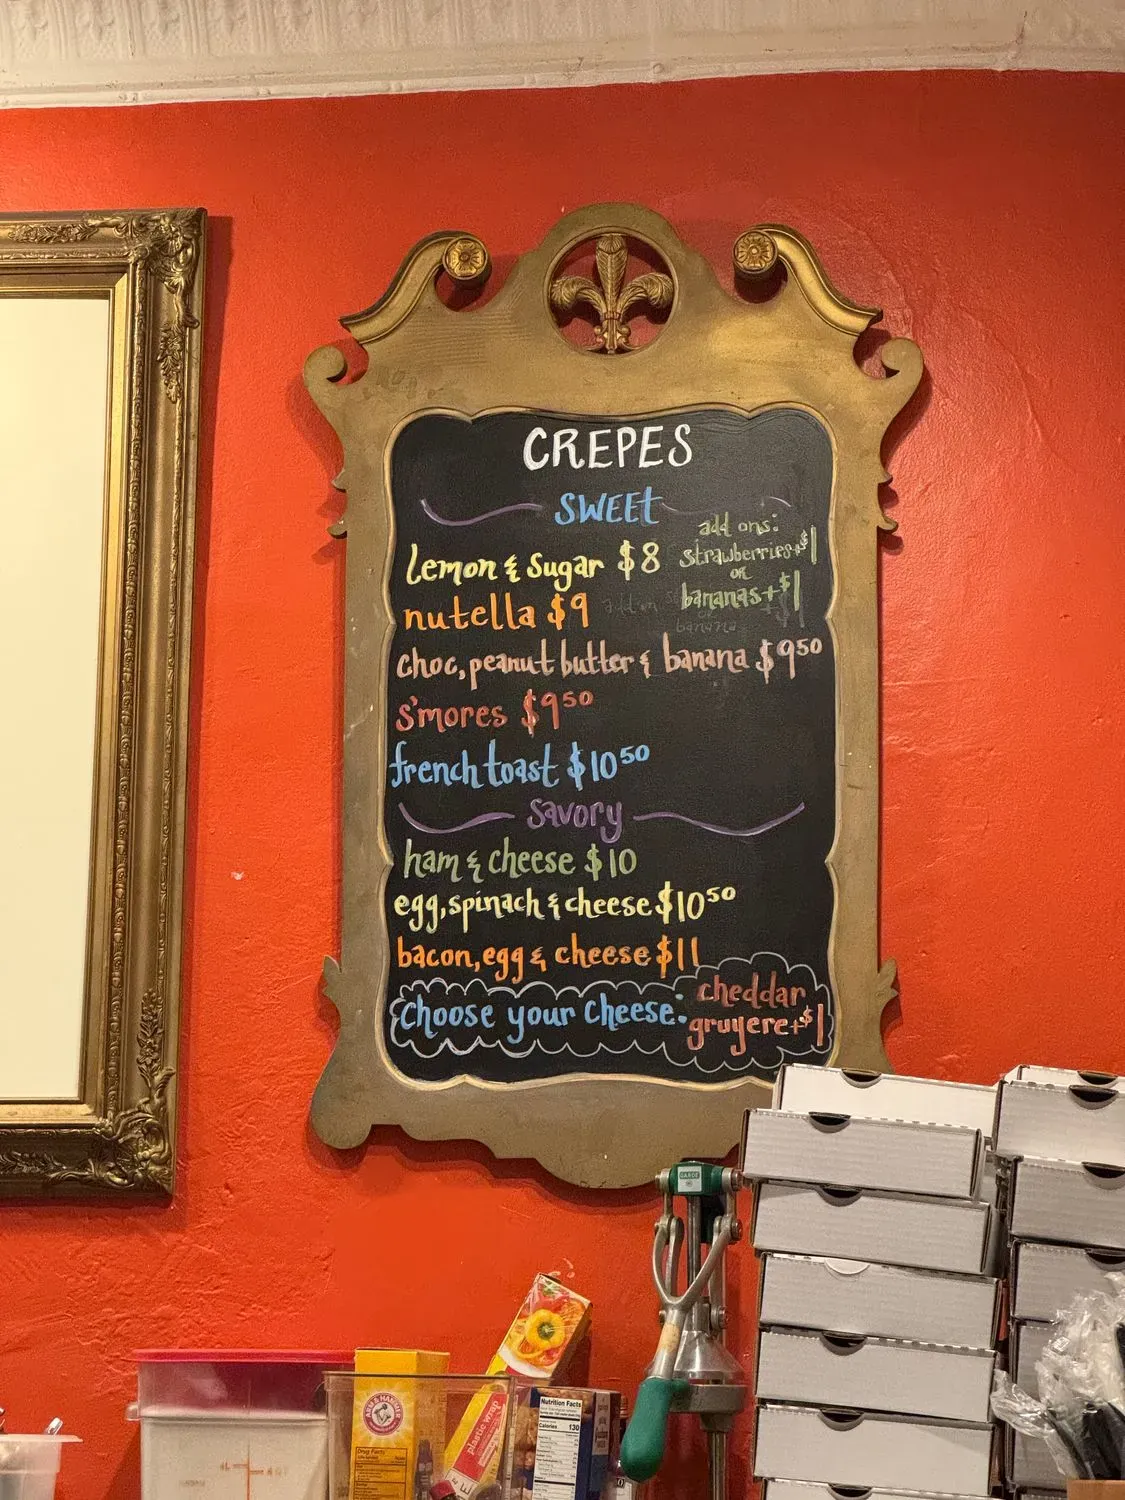 CREPES
SWEET
add ons:
strawberries+$1
or
bananas+$1
lemon & sugar $8
nutella $9
add on
banana
choc, peanut butter & banana $950
s'mores $950
french toast $1050
savory
ham & cheese $10
egg, spinach & cheese $1050
bacon, egg & cheese $11
choose your cheese:
cheddar
gruyere+$1
GARDE
ARM & HAMMER
Drug Facts
plastic wrap
Nutrition Facts
Calories 130